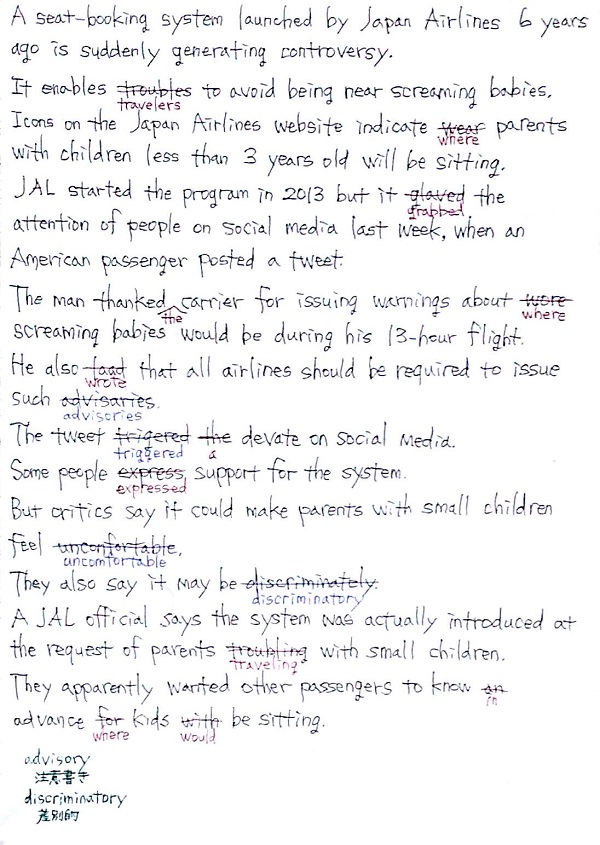 A seat-booking system launched by Japan Airlines 6 years
ago is suddenly generating controversy.
It enables troubles to avoid being near screaming babies.
travelers
Icons on the Japan Airlines website indicate wear parents
where
with children less than 3 years old will be sitting.
JAL started the program in 2013 but it glaved the
grabbed
attention of people on social media last week, when an
American passenger posted a tweet.
The man thanked carrier for issuing warnings about wore
the where
screaming babies would be during his 13-hour flight.
He also taad that all airlines should be required to issue
wrote
such advisaries.
advisories
The tweet trigered the devate on social media.
triggered a
Some people express support for the system.
expressed
But critics say it could make parents with small children
feel unconfortable,
uncomfortable
They also say it may be discriminately.
discriminatory
A JAL official says the system was actually introduced at
the request of parents troubling with small children.
traveling
They apparently wanted other passengers to know an
in
advance for kids with be sitting.
where would
advisory
注意書き
discriminatory
差別的